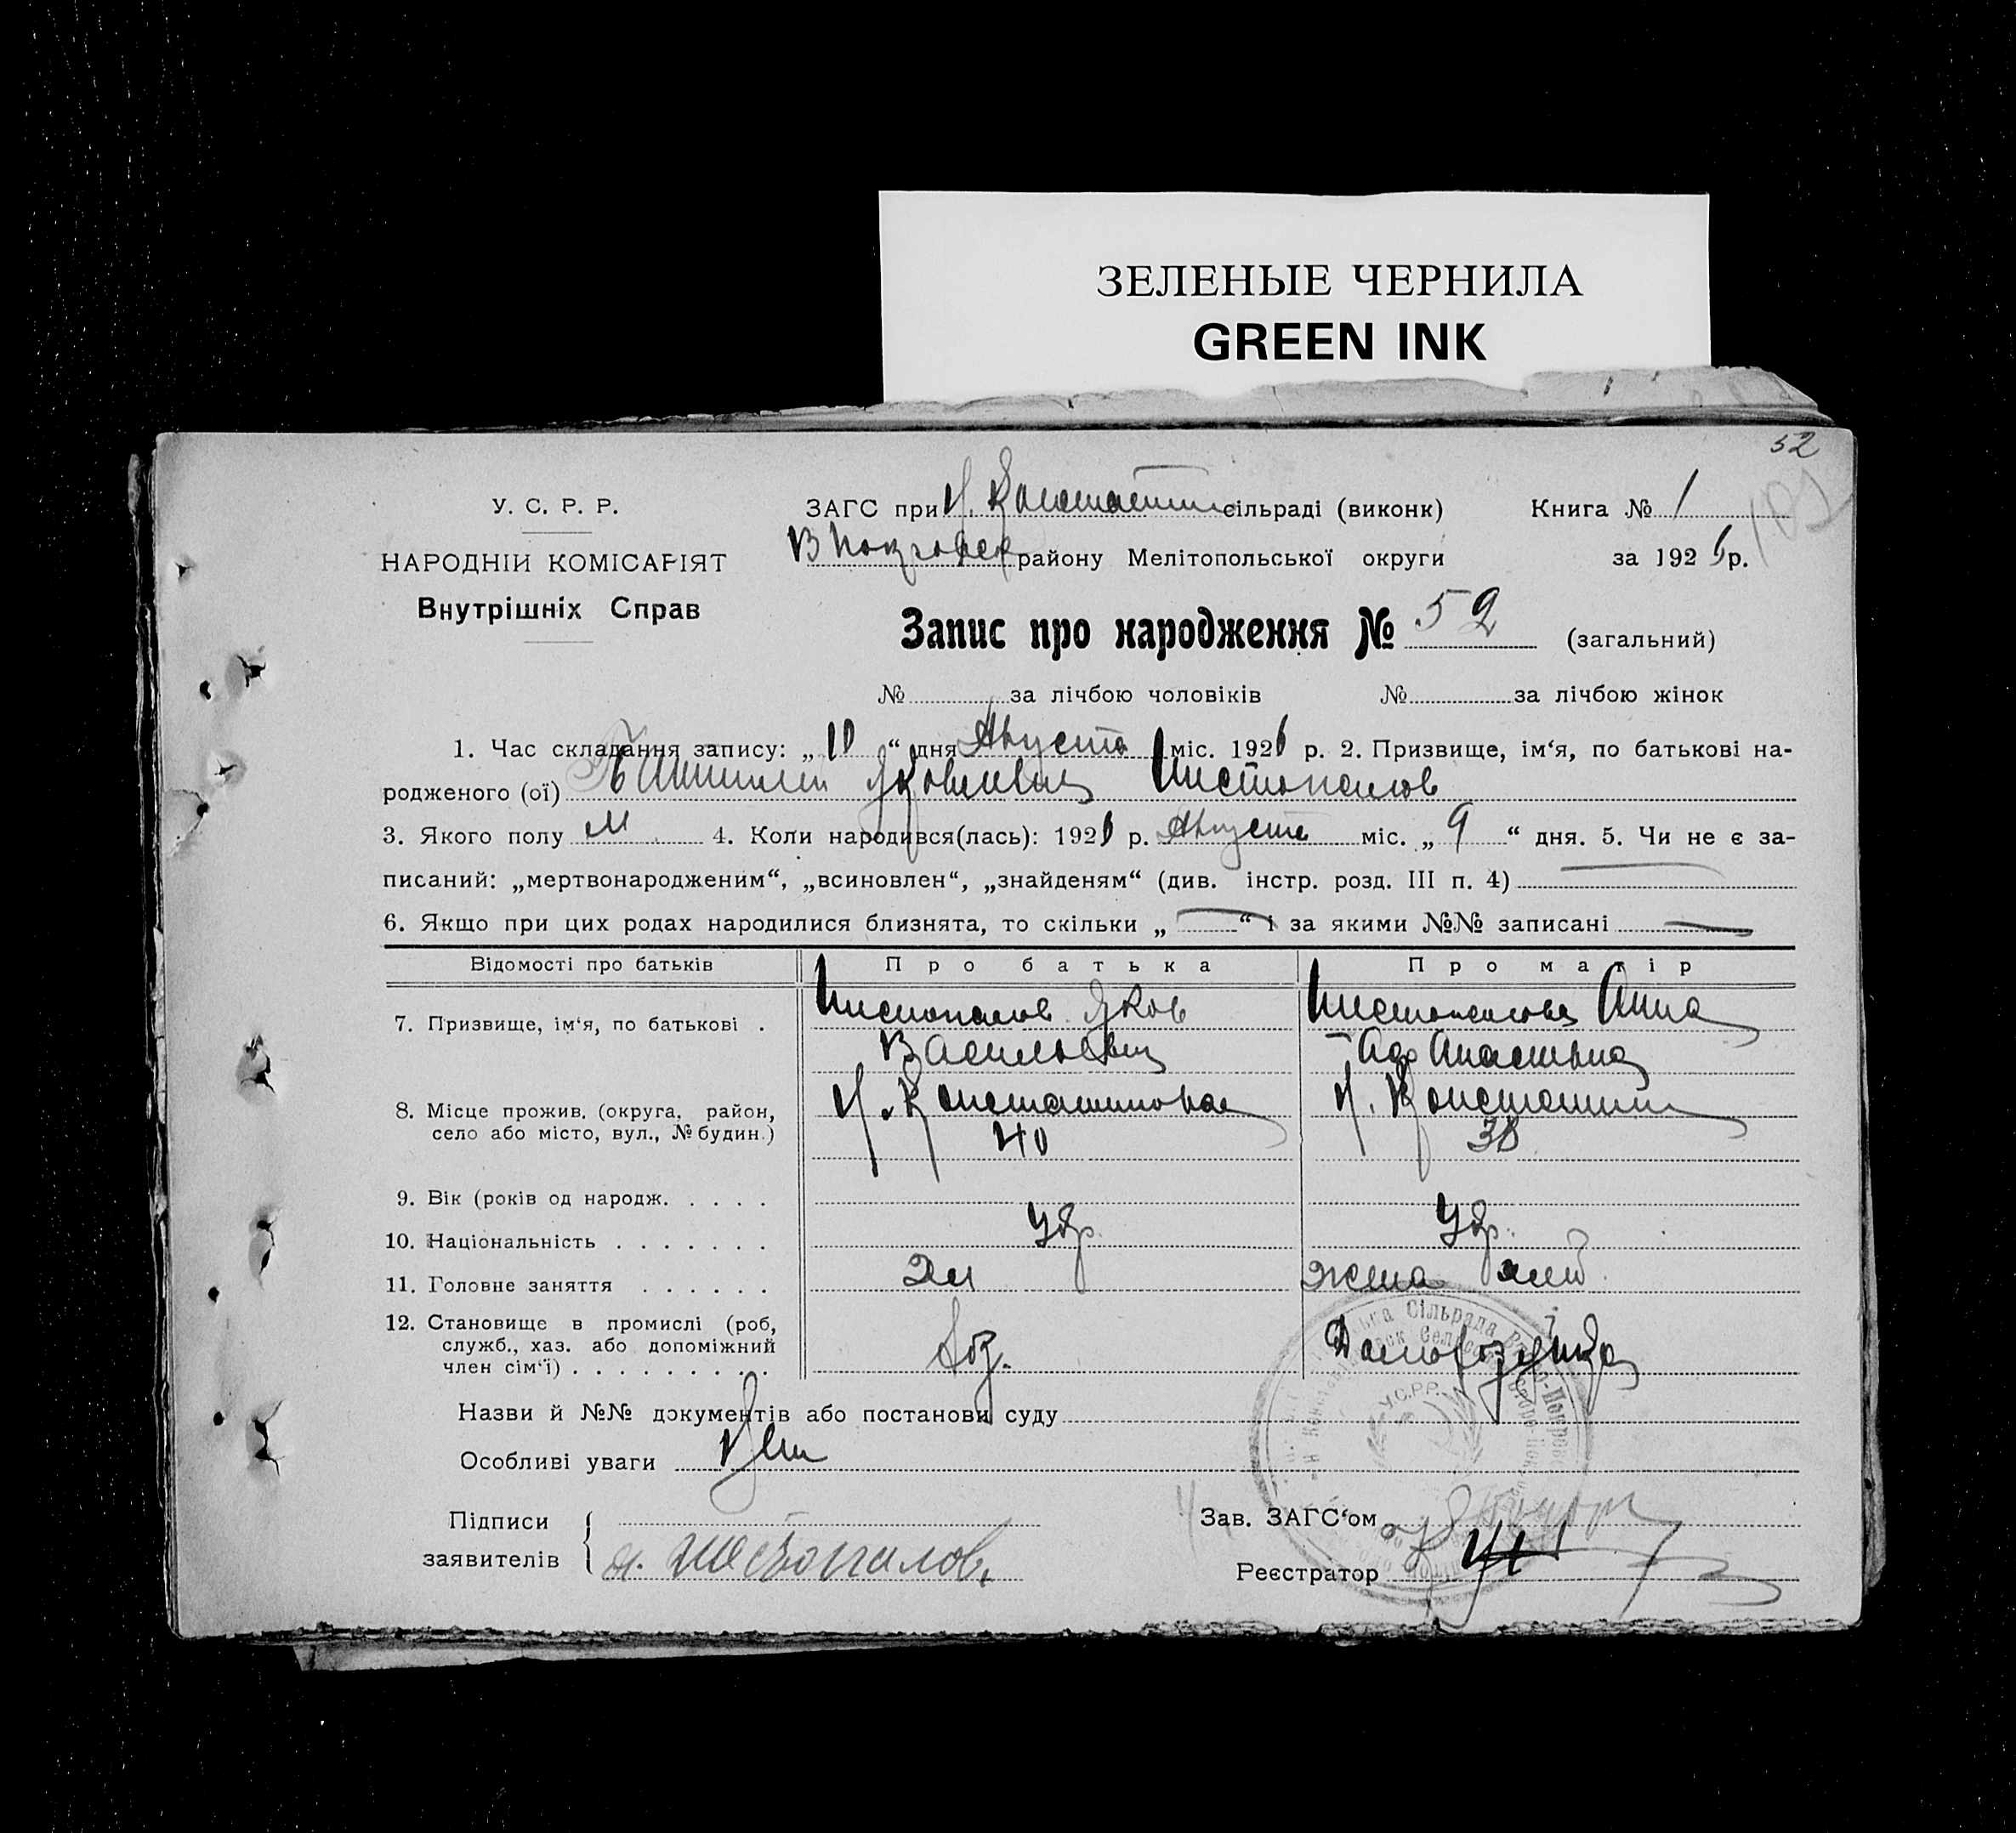 ЗЕЛЕНЫЕ ЧЕРНИЛА
GREEN INK
52
У. С. Р. Р.
НАРОДНІЙ КОМІСАРІЯТ
Внутрішніх Справ
ЗАГС при Н. Константин сільраді (виконк)
району Мелітопольської округи
Книга № 1
за 1926 р.
Запис про народження № 52 (загальний)
№ за лічбою чоловіків № за лічбою жінок
1. Час складання запису: „10“ дня Августа міс. 1926 р. 2. Призвище, ім‘я, по батькові на-
родженого (ої) Яковлевич Чистопалов
3. Якого полу М 4. Коли народився(лась): 1926 р. Августа міс. „9“ дня. 5. Чи не є за-
писаний: „мертвонародженим“, „всиновлен“, „знайденям“ (див. інстр. розд. III п. 4)
6. Якщо при цих родах народилися близнята, то скільки „ — “ і за якими №№ записані —
Відомості про батьків Про батька Про матір
7. Призвище, ім‘я, по батькові . Чистопалов Яков Чистопалова Анна
Васильевич
8. Місце прожив. (округа, район, Н. Константиновка Н. Константин
село або місто, вул., № будин.) 40 38
9. Вік (років од народж. . . . .
10. Національність . . . . . . . Укр. Укр.
11. Головне заняття . . . . . . жена
12. Становище в промислі (роб,
служб., хаз. або допоміжний Хоз. Домохозяйка
член сім‘ї) . . . . . . . . .
Назви й №№ документів або постанови суду
Особливі уваги Нет
Підписи
заявителів
Зав. ЗАГС‘ом
Реєстратор
У.С.Р.Р.